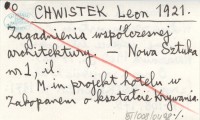 CHWISTEK Leon 1921.
Zagadnienia współczesnej
architektury. — Nowa Sztuka
nr 1, il.
M.in. projekt hotelu w
Zakopanem o kształcie Krywania.